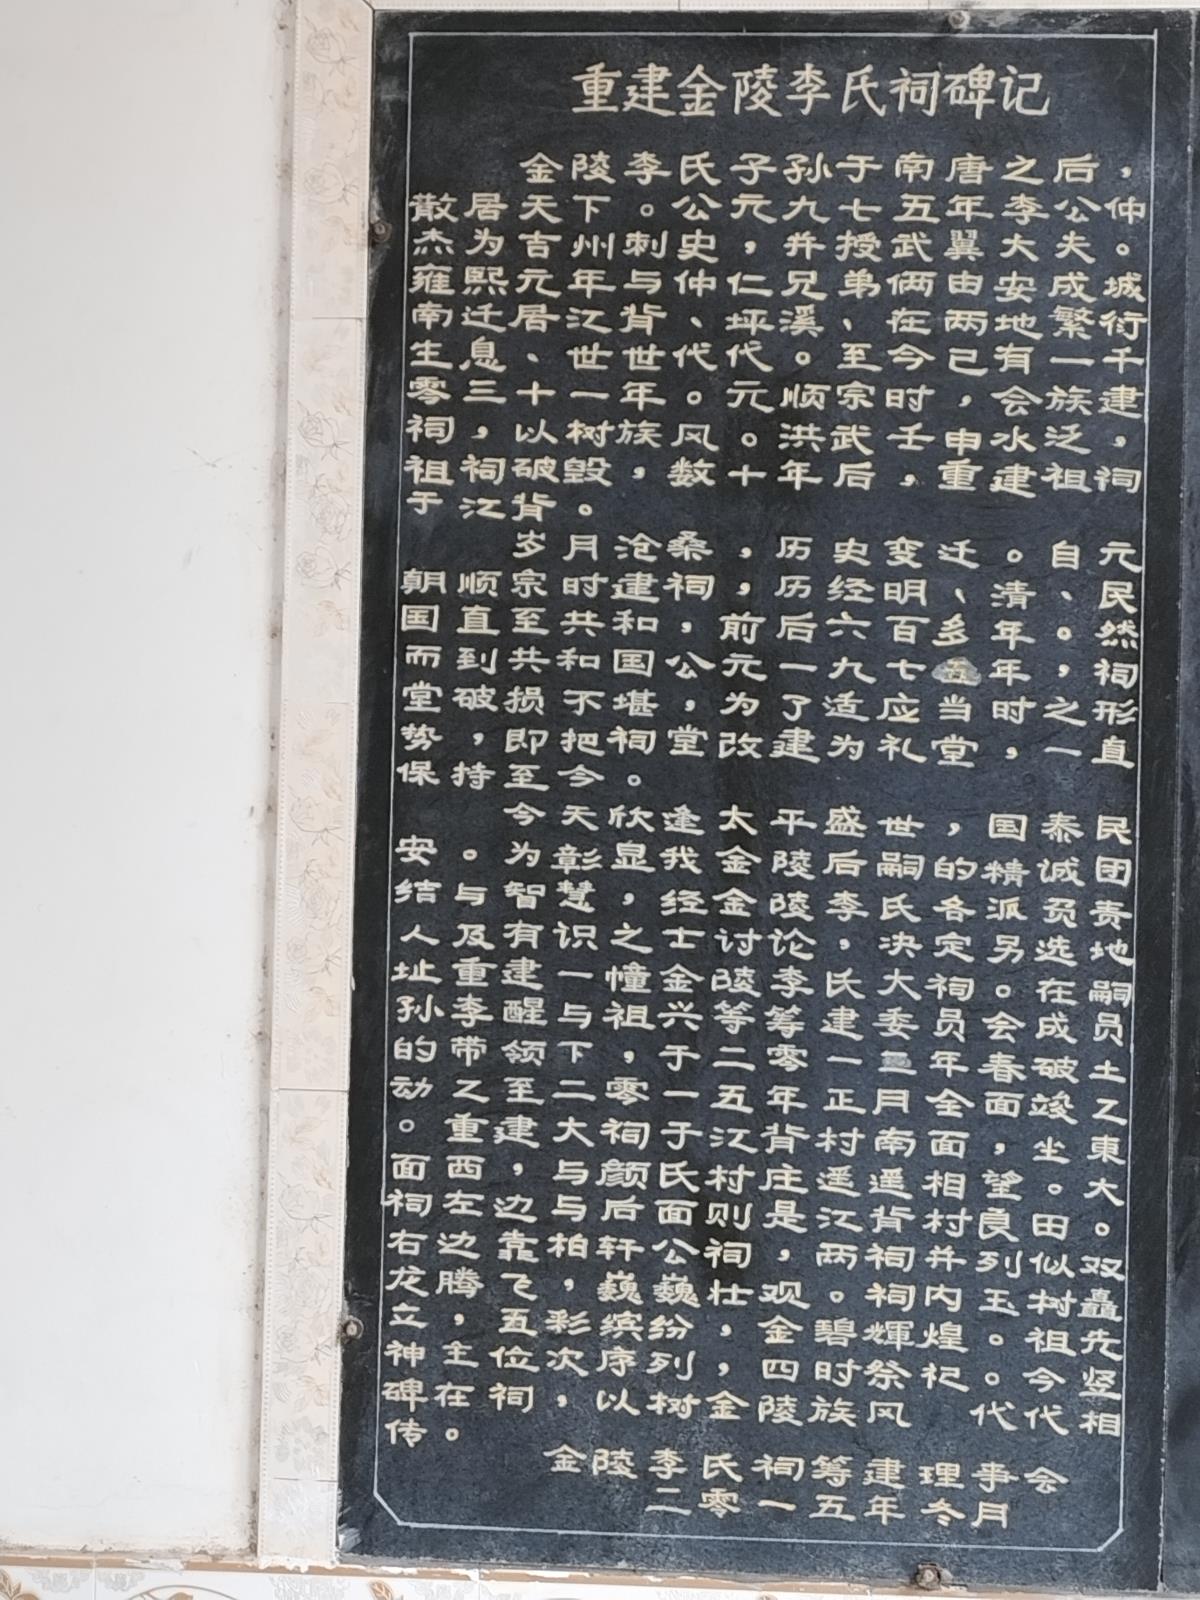 重建金陵李氏祠碑记
金陵李氏子孙于南唐之后,
散居天下。公元九七五年李公仲
杰为吉州刺史,并授武翼大夫。
雍熙元年与仲仁兄弟俩由安成城
南迁居江背、坪溪、在两地繁衍
生息、世世代代。至今已有一千
零三十一年。元顺宗时,会族建
祠,以树族风。洪武壬申水泛,
祖祠破毁,数十年后,重建祖祠
于江背。
岁月沧桑,历史变迁。自元
朝顺宗时建祠,历经明、清、民
国直至共和,前后六百多年。然
而到共和国公元一九七五年,祠
堂破损不堪,为了适应当时之形
势,即把祠堂改建为礼堂,一直
保持至今。
今天欣逢太平盛世,国泰民
安。为彰显我金陵后嗣的精诚团
结与智慧,经金陵李氏各派负责
人及有识之士讨论,决定另选地
址重建一幢金陵李氏大祠。在嗣
孙李醒与祖兴等筹建委员会成员
的带领下,于二零一三年春破土
动之至二零一五年正月全面竣工
。重建大祠于江背村南面,坐東
面西,与颜氏村庄遥遥相望。大
祠左边与后面则是江背村良田。
右边靠柏轩公祠,两祠并列似双
龙腾飞,巍巍壮观。祠内玉树矗
立,五彩缤纷,金碧輝煌。祖先
神主位次序列,四时祭祀。今竖
碑在祠,以树金陵族风代代相
传。
金陵李氏祠筹建理事会
二零一五年冬月